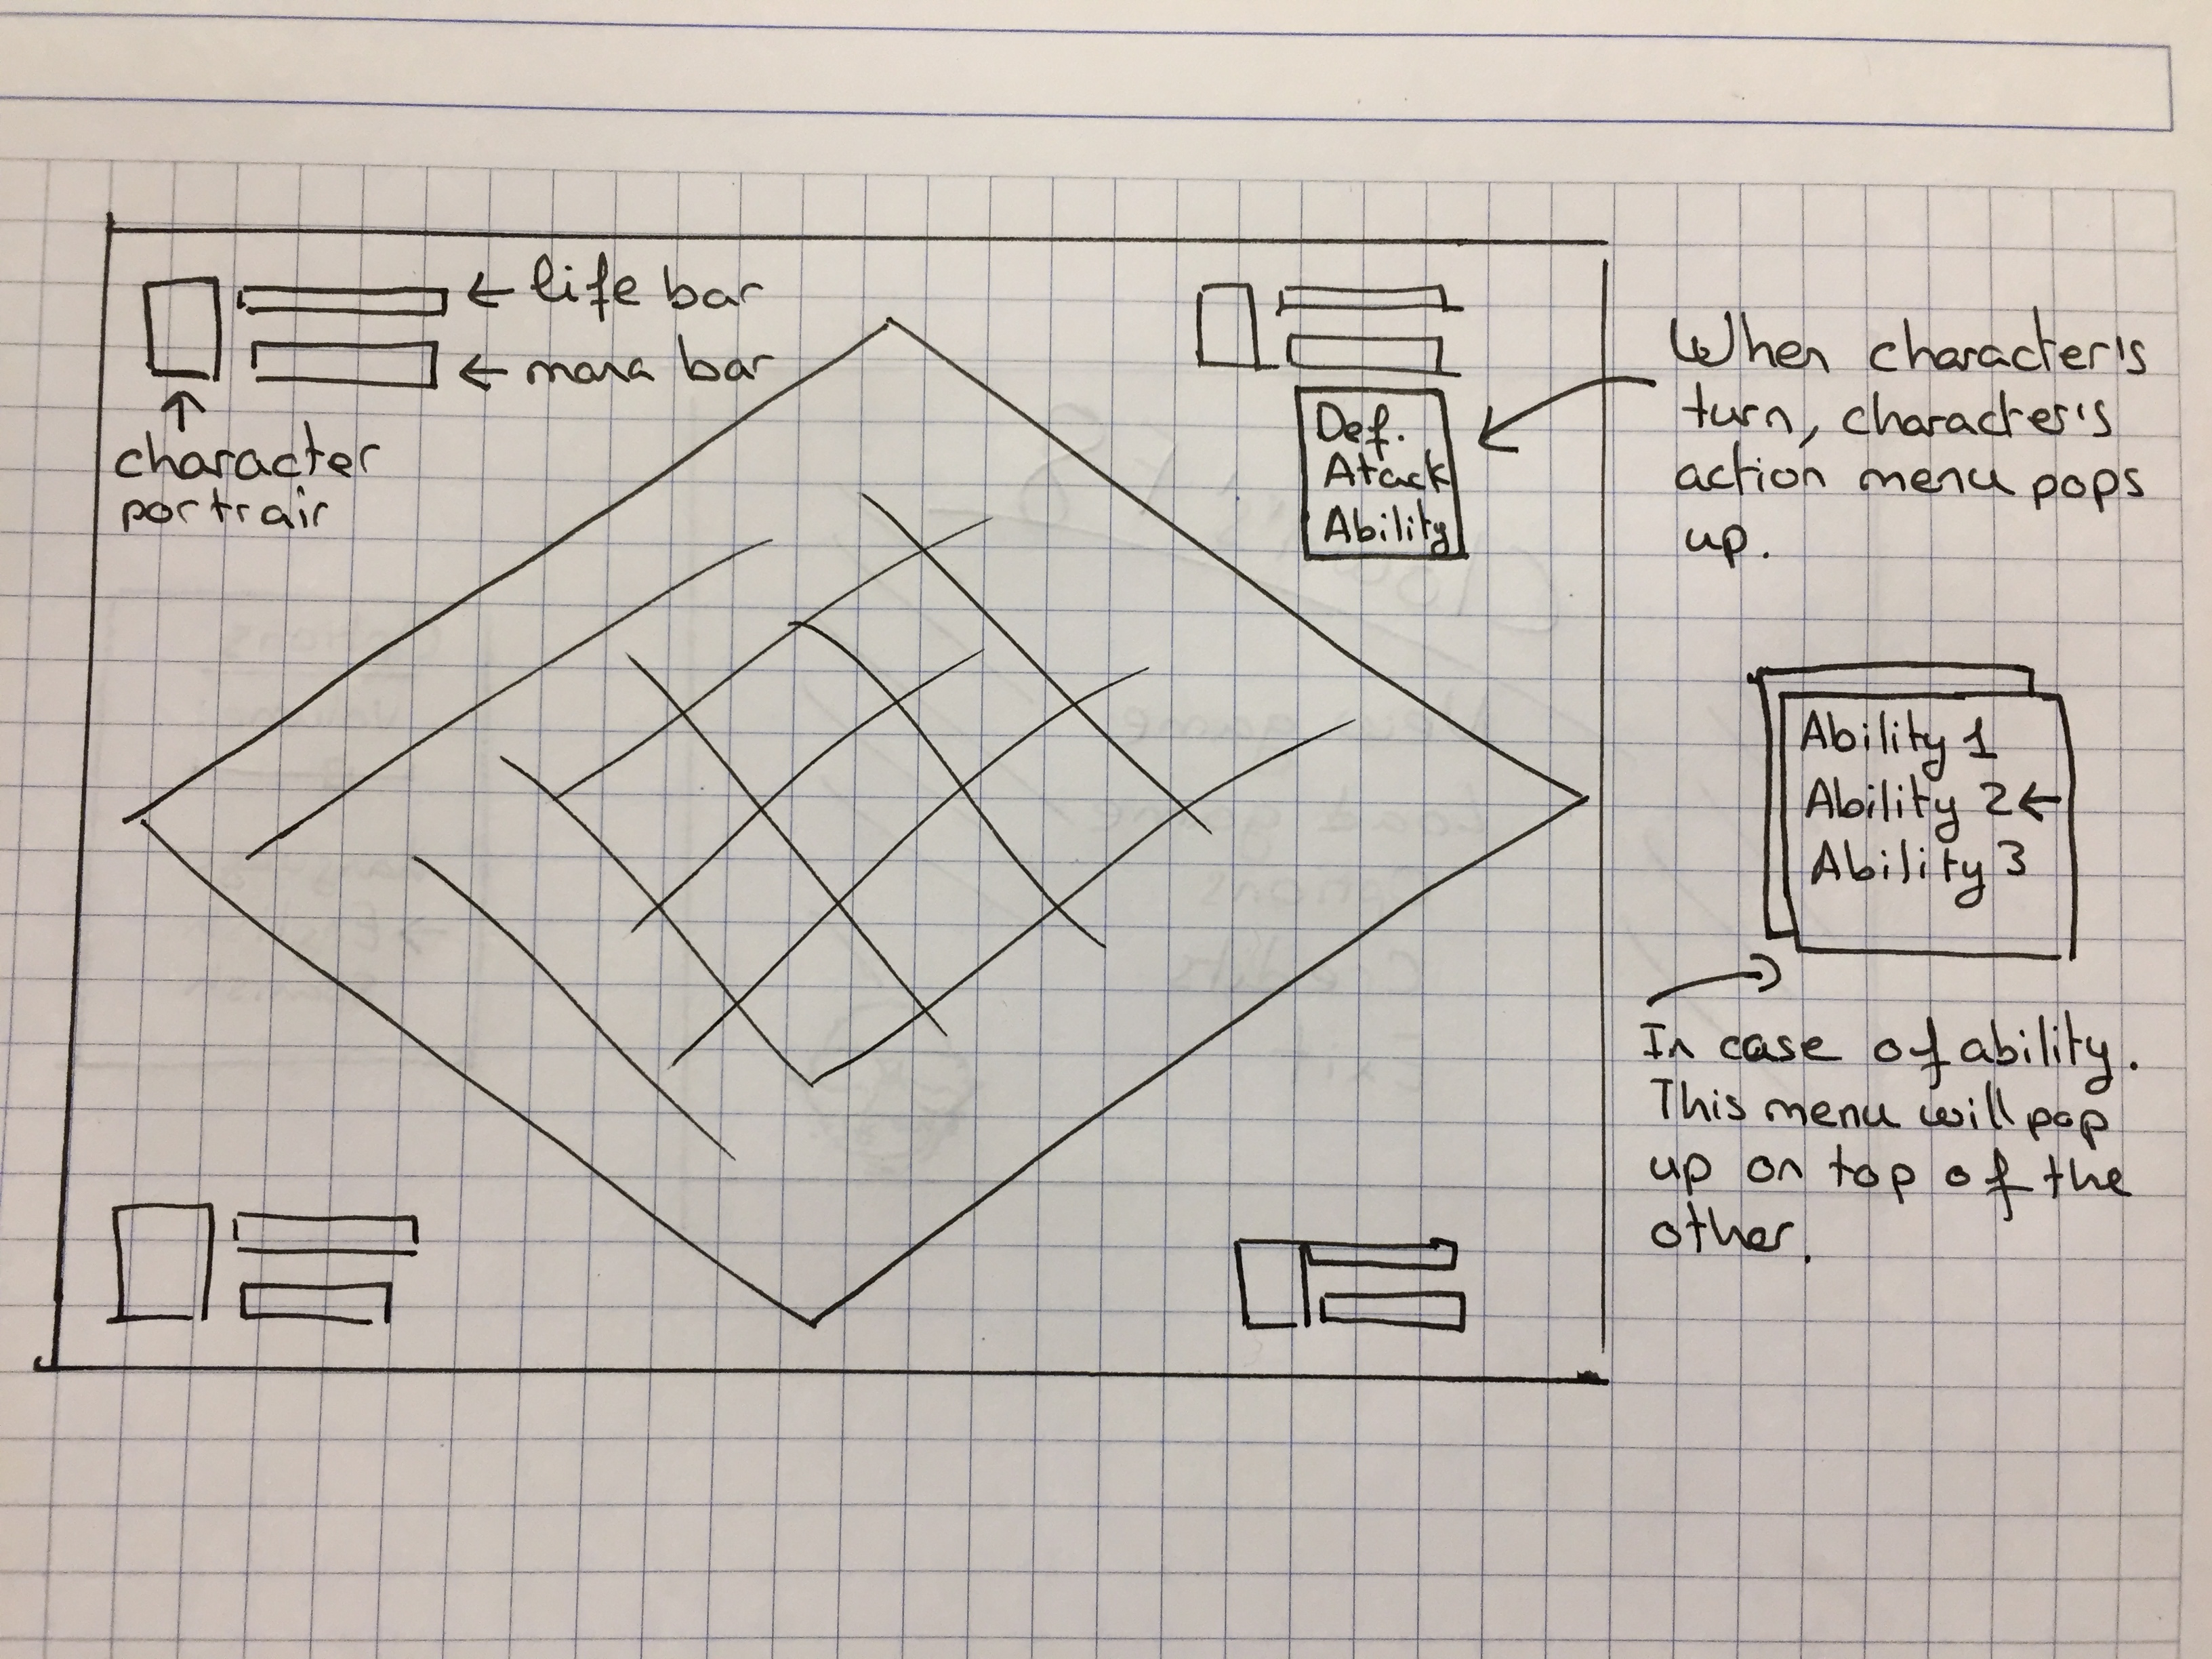 life bar
mana bar
character
portrair
Def.
Atack
Ability
When character's
turn, character's
action menu pops
up.
Ability 1
Ability 2
Ability 3
In case of ability.
This menu will pop
up on top of the
other.